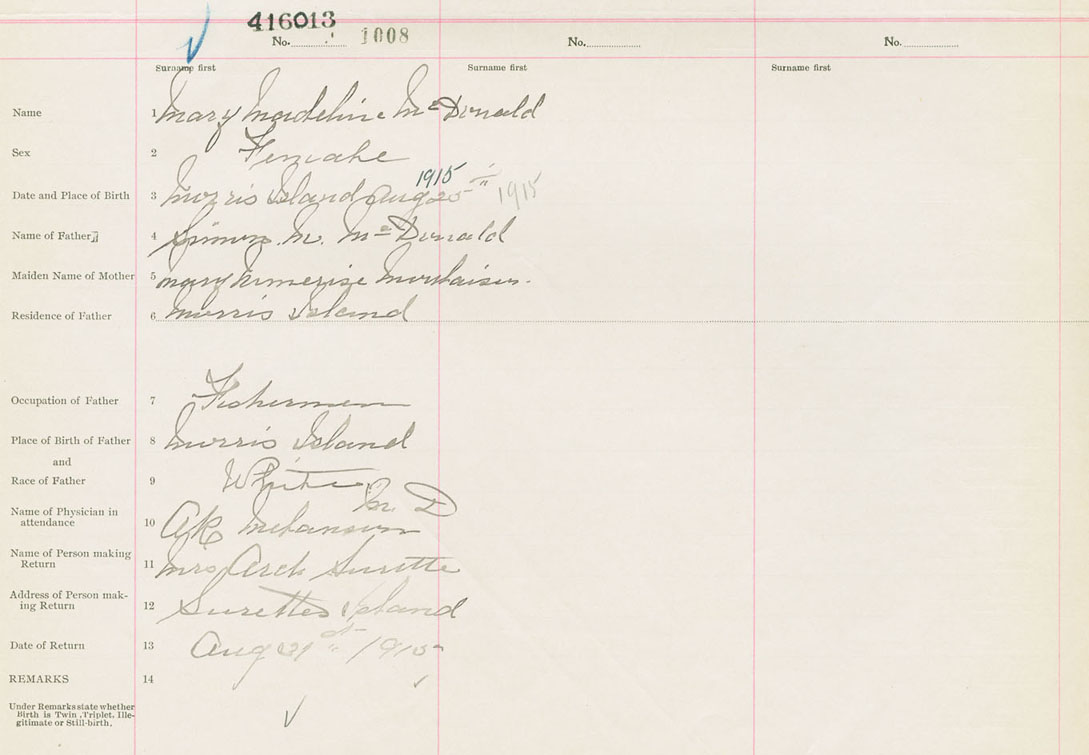 416013
No. 1008 No. No.
Surname first Surname first Surname first
Name 1 Mary Madeline McDonald
Sex 2 Female
1915
Date and Place of Birth 3 Morris Island Aug 25th 1915
Name of Father 4 Simon M. McDonald
Maiden Name of Mother 5 Mary
Residence of Father 6 Morris Island
Occupation of Father 7 Fishermen
Place of Birth of Father 8 Morris Island
and
Race of Father 9 White
Name of Physician in M. D
attendance 10 Melanson
Name of Person making
Return 11 Mrs Arch Surette
Address of Person mak-
ing Return 12 Surettes Island
Date of Return 13 Aug 31st 1915
REMARKS 14
Under Remarks state whether
Birth is Twin, Triplet, Ille-
gitimate or Still-birth.